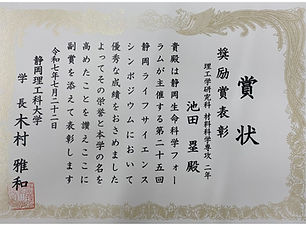 賞状
奨励賞表彰
理工学研究科 材料科学専攻 二年
池田 塁 殿
貴殿は静岡生命科学フォー
ラムが主催する第二十五回
静岡ライフサイエンス
シンポジウムにおいて
優秀な成績をおさめました
よってその栄誉と本学の名を
高めたことを讃えここに
副賞を添えて表彰します
令和七年七月二十二日
静岡理工科大学
学長 木村 雅和